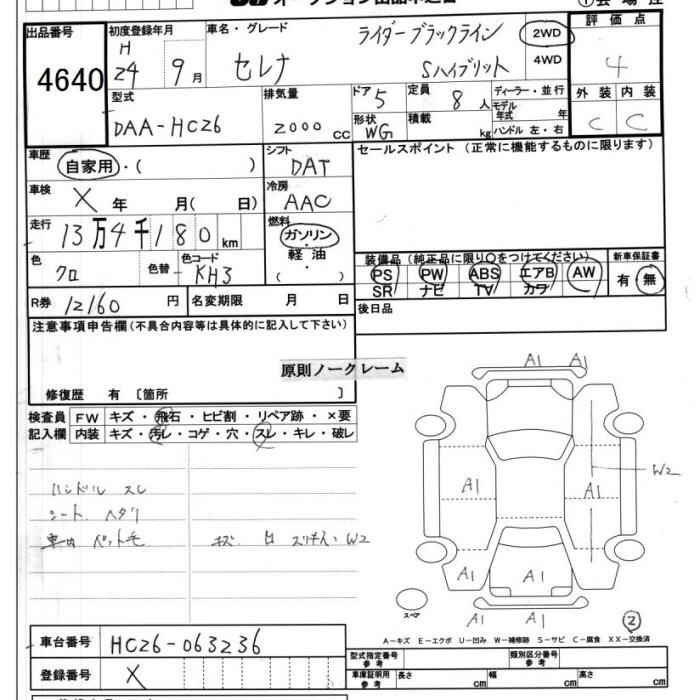 オークション出品申込書
①会場控
出品番号 4640
初度登録年月 H 24 9月
車名・グレード セレナ ライダーブラックライン Sハイブリット
2WD
4WD
評価点 4
外装 C 内装 C
型式 DAA-HC26
排気量 2000 cc
ドア 5
形状 WG
定員 8人
積載 kg
ディーラー・並行
モデル年式 年
ハンドル 左・右
車歴 自家用・( )
シフト DAT
セールスポイント (正常に機能するものに限ります)
車検 X 年 月( 日)
冷房 AAC
走行 13万4千180km
燃料 ガソリン・軽油・( )
色 クロ 色替 色コード KH3
装備品 (純正品に限り○をつけてください)
PS PW ABS エアB AW
SR ナビ TV カワ
新車保証書 有・無
R券 12160 円 名変期限 月 日
後日品
注意事項申告欄(不具合内容等は具体的に記入して下さい)
原則ノークレーム
修復歴 有 〔箇所 〕
検査員記入欄
FW キズ・飛石・ヒビ割・リペア跡・×要
内装 キズ・汚レ・コゲ・穴・スレ・キレ・破レ
ハンドル スレ
シート ヘタリ
車内 ペット毛
A1 A1
W2
A1 A1
A1 A1 A1
A1 A1
スペア
②
A-キズ E-エクボ U-凹み W-補修跡 S-サビ C-腐食 XX-交換済
車台番号 HC26-063236
登録番号 X
型式指定番号 参考
類別区分番号 参考
車庫証明用 参考 長さ cm 幅 cm 高さ cm